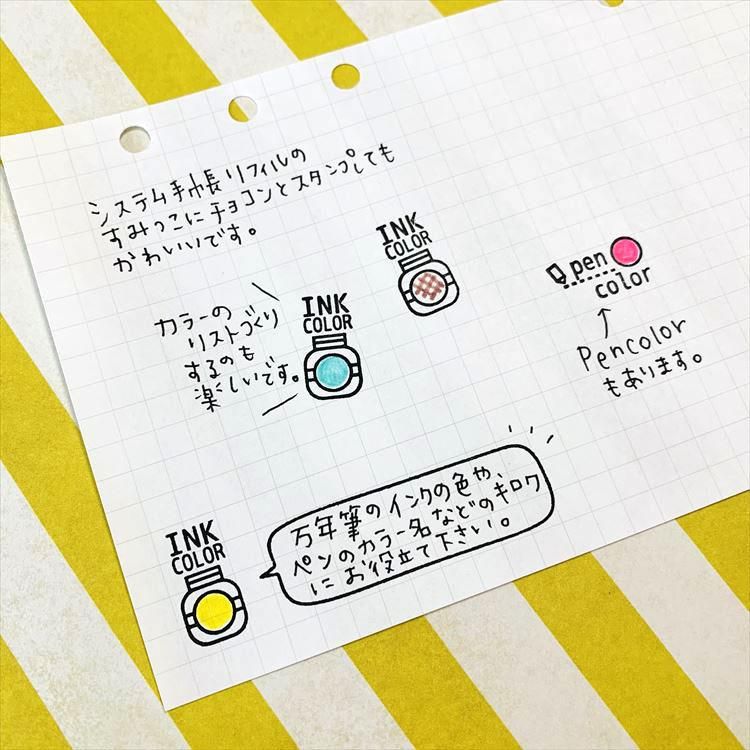 システム手帳リフィルの
すみっこにチョコンとスタンプしても
かわいいです。
INK
COLOR
カラーの
リストづくり
するのも
楽しいです。
INK
COLOR
pen
color
Pencolor
もあります。
INK
COLOR
万年筆のインクの色や、
ペンのカラー名などのキロク
にお役立て下さい。